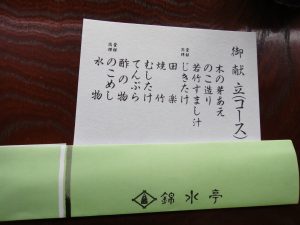 御献立(コース)
木の芽あえ
のこ造り
若竹すまし汁
じきたけ
田楽
焼竹
むしたけ
てんぷら
酢の物
のこめし
水物
錦水亭